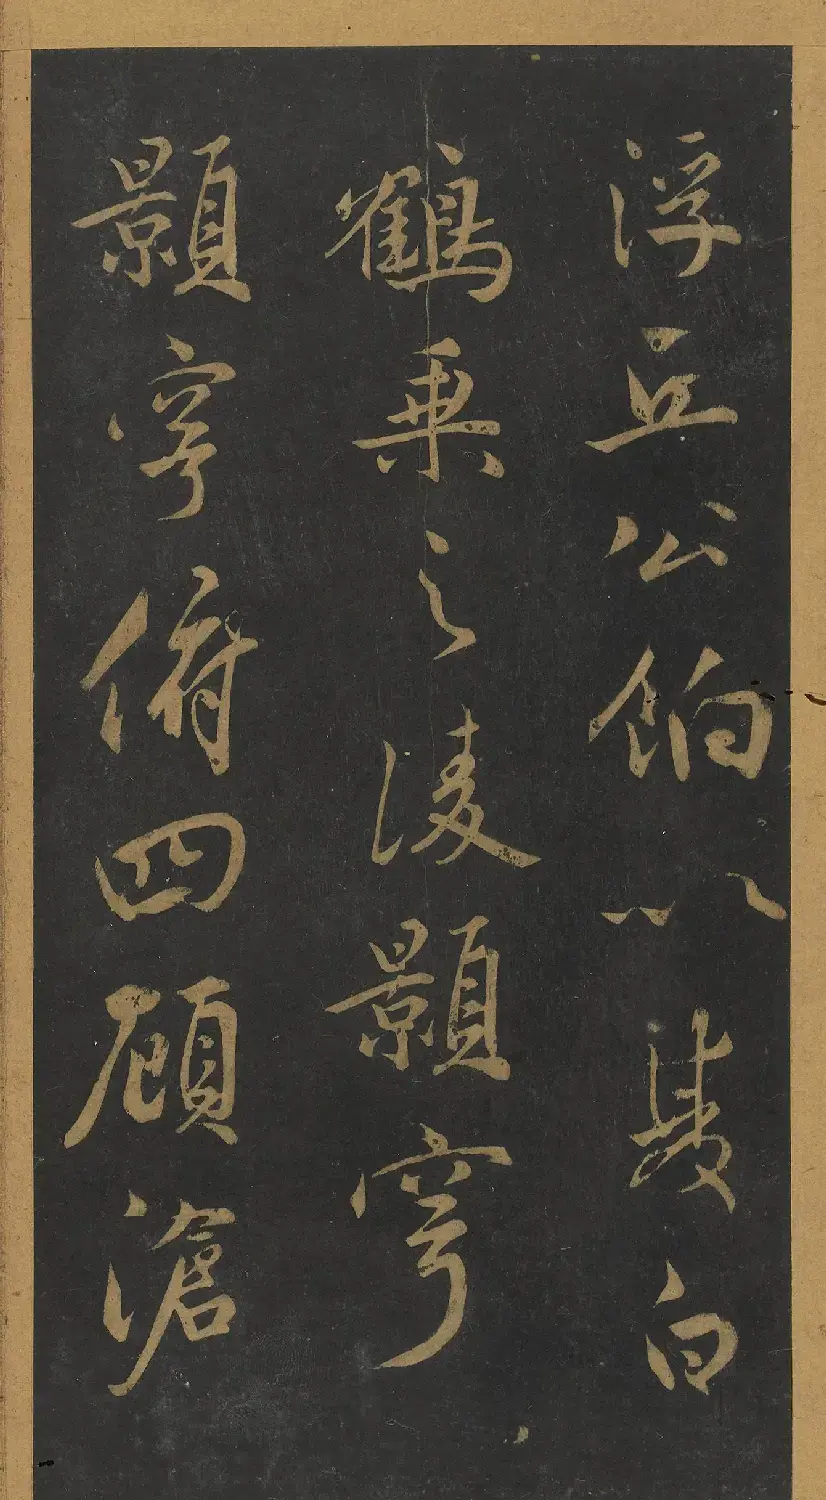 浮丘公餉以雙白
鶴乘之凌顥穹
顥穹俯四顧滄